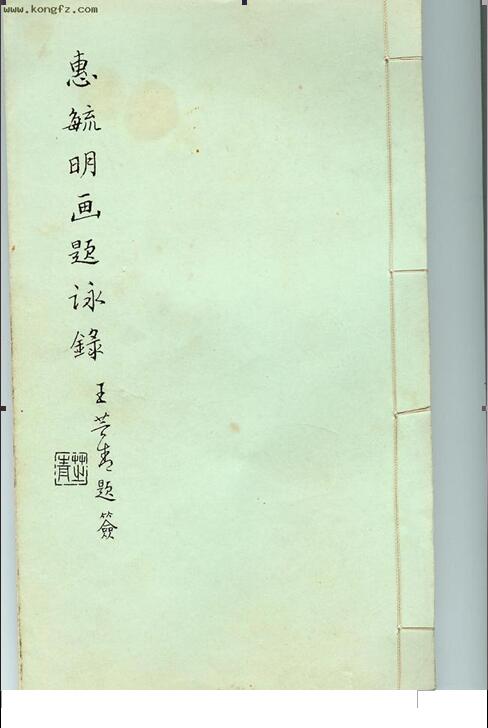 www.kongfz.com
惠毓明画题詠錄
王芝青題簽
芝青